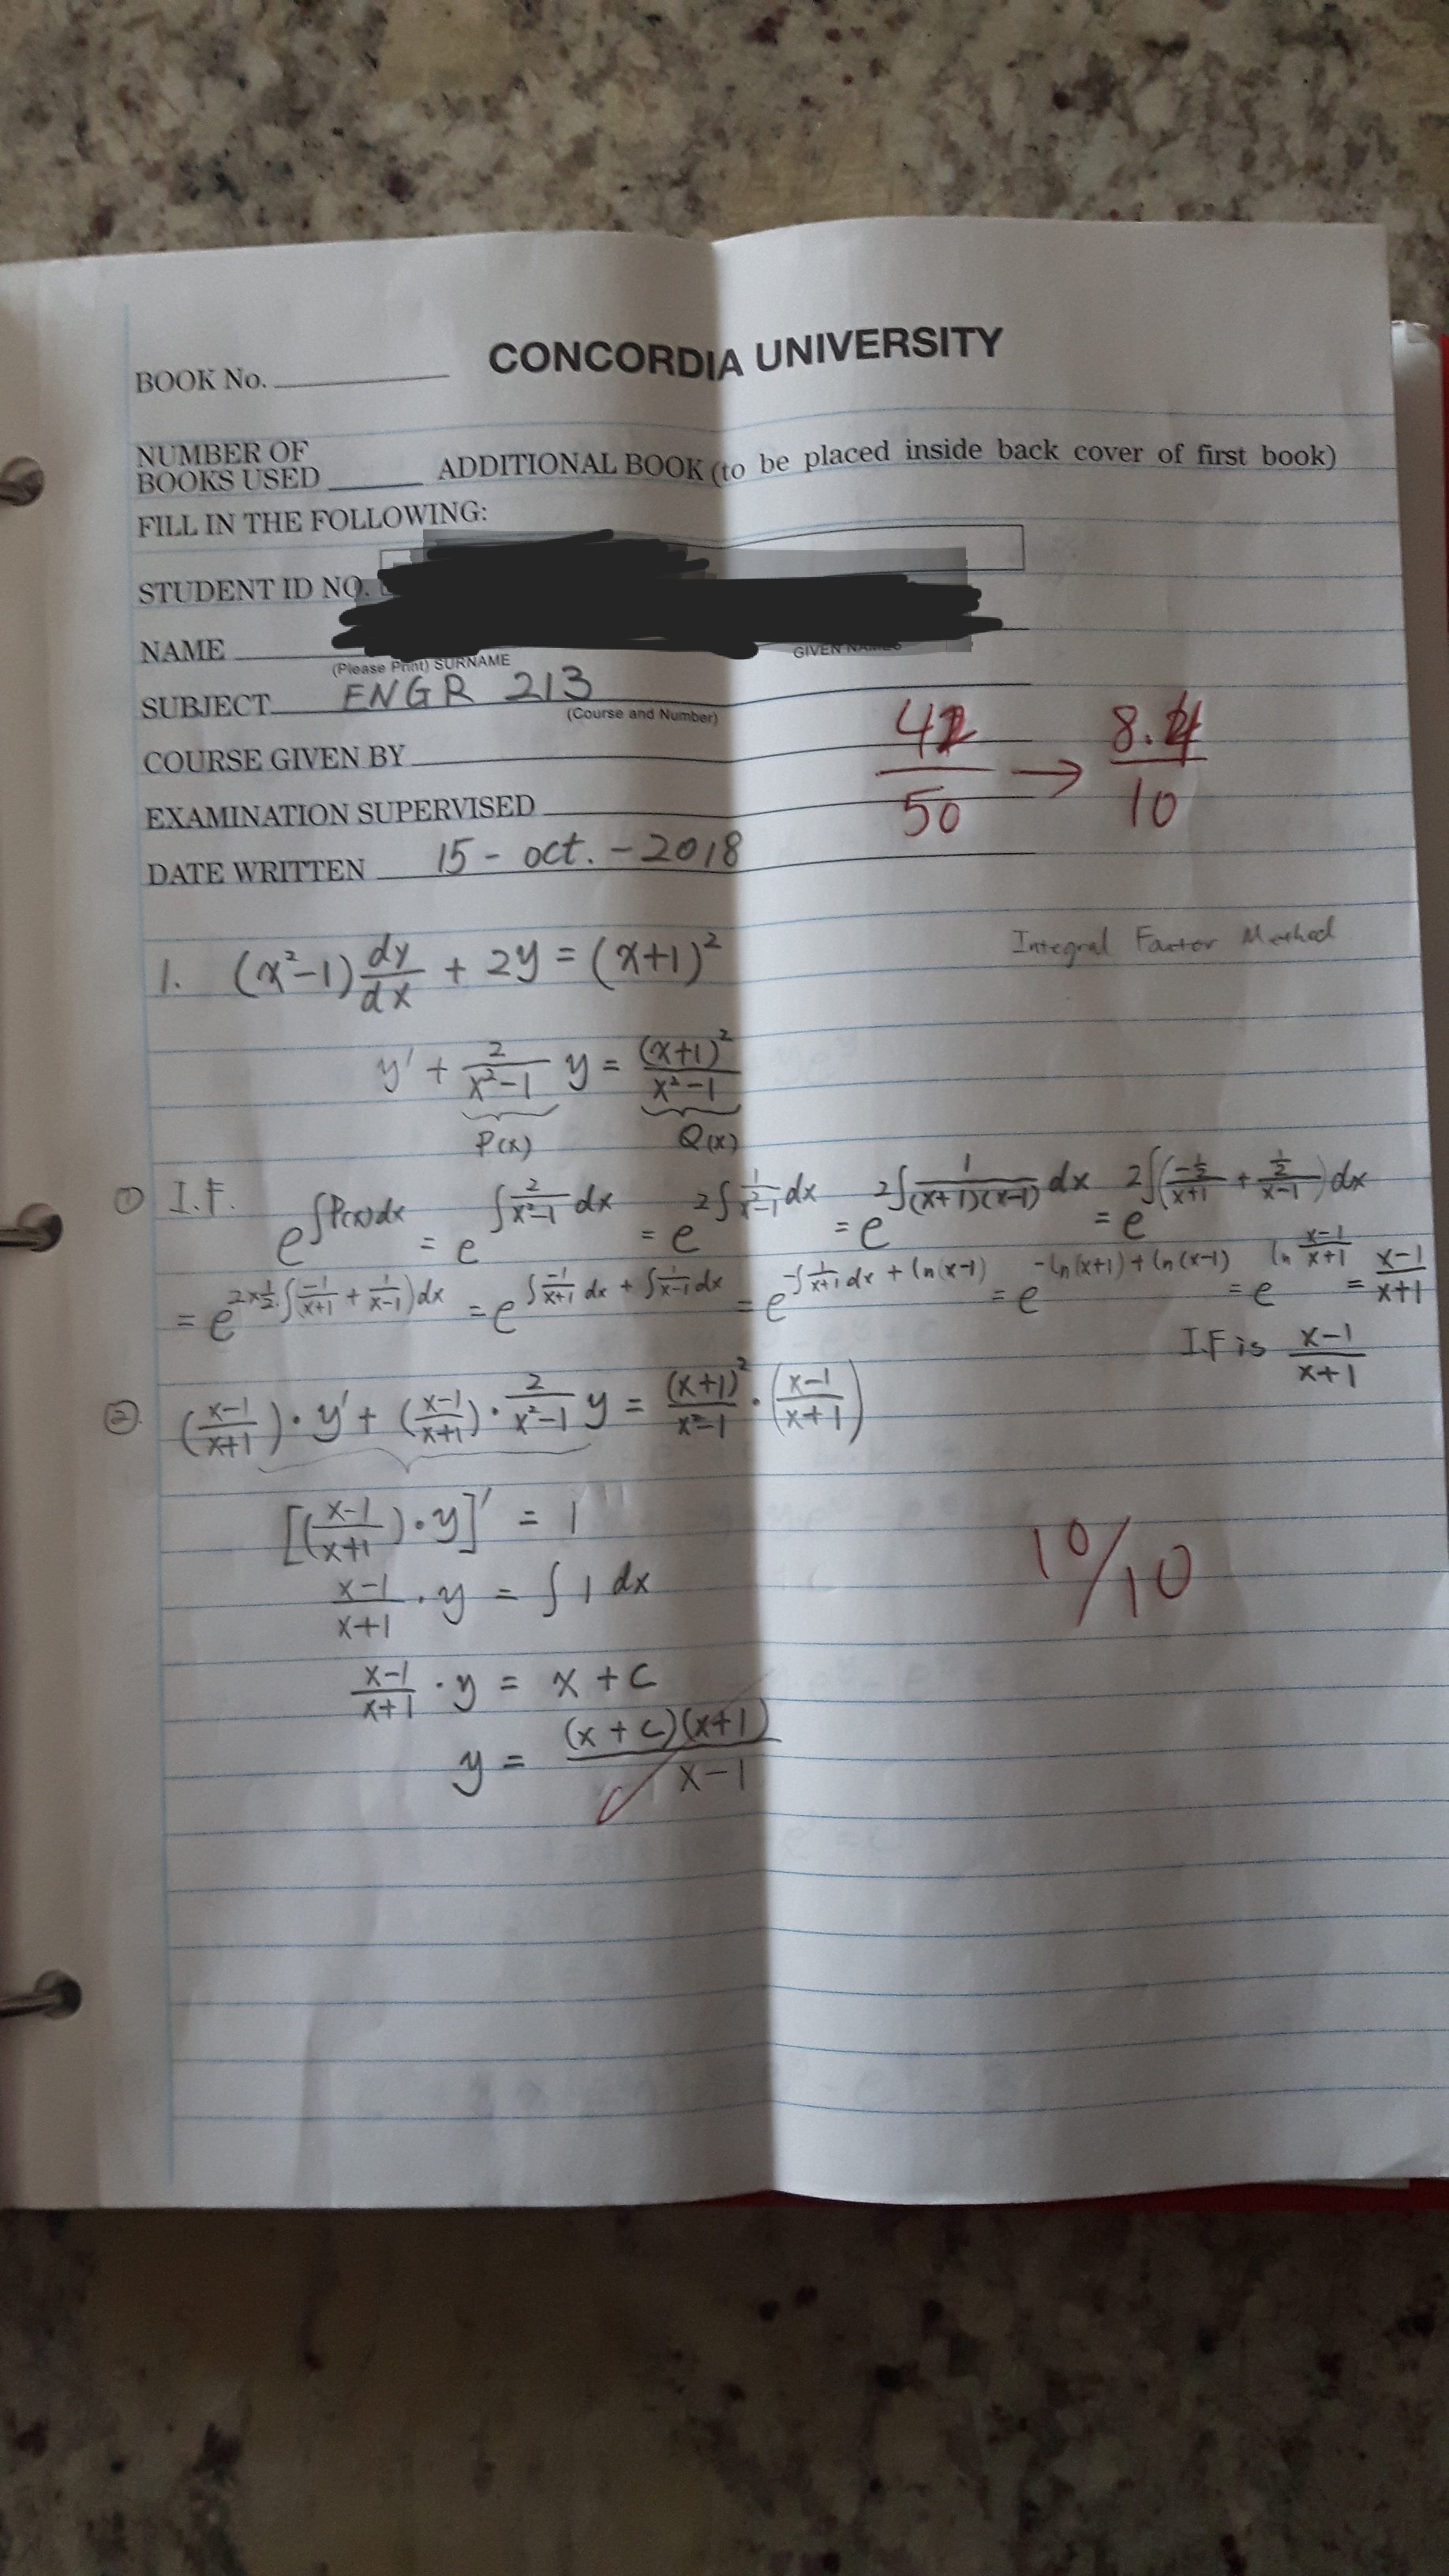 CONCORDIA UNIVERSITY
BOOK No.
NUMBER OF
BOOKS USED ADDITIONAL BOOK (to be placed inside back cover of first book)
FILL IN THE FOLLOWING:
STUDENT ID NO.
NAME
(Please Print) SURNAME GIVEN NAMES
SUBJECT ENGR 213
(Course and Number)
COURSE GIVEN BY
EXAMINATION SUPERVISED
DATE WRITTEN 15 - oct. - 2018
/50 → 8. /10
Integral Factor Method
1. (x²-1) dy/dx + 2y = (x+1)²
y' + 2/(x²-1) y = (x+1)²/(x²-1)
P(x) Q(x)
① I.F. e^(∫P(x)dx) = e^(∫ 2/(x²-1) dx) = e^(2∫ 1/(x²-1) dx) = e^(2∫ 1/((x+1)(x-1)) dx) = e^(2∫ ((-1/2)/(x+1) + (1/2)/(x-1)) dx)
= e^(2×1/2·∫(-1/(x+1) + 1/(x-1))dx) = e^(∫ -1/(x+1) dx + ∫ 1/(x-1) dx) = e^(-∫ 1/(x+1) dx + ln(x-1)) = e^(-ln(x+1) + ln(x-1)) = e^(ln (x-1)/(x+1)) = (x-1)/(x+1)
I.F is (x-1)/(x+1)
② ((x-1)/(x+1)) · y' + ((x-1)/(x+1)) · 2/(x²-1) y = (x+1)²/(x²-1) · ((x-1)/(x+1))
[((x-1)/(x+1)) · y]' = 1
(x-1)/(x+1) · y = ∫ 1 dx
10/10
(x-1)/(x+1) · y = x + c
y = (x + c)(x+1)/(x-1)